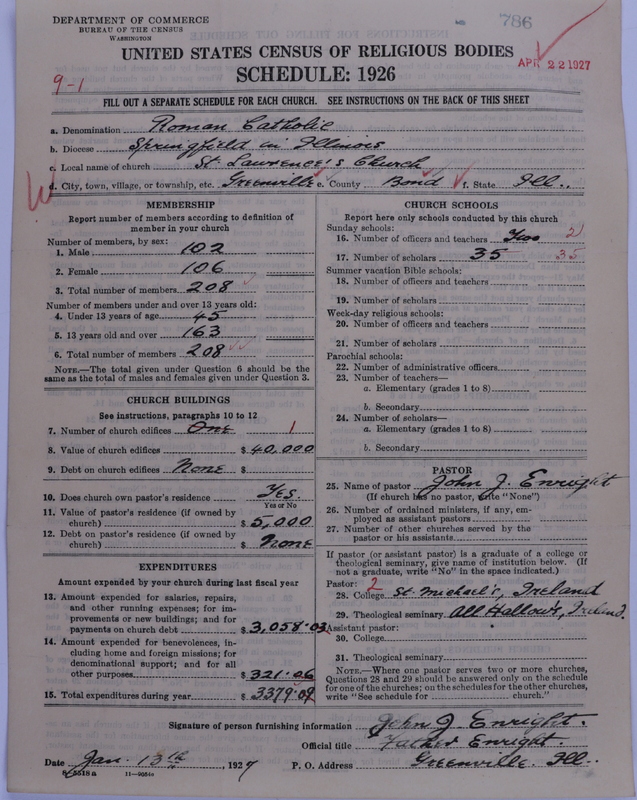 DEPARTMENT OF COMMERCE
BUREAU OF THE CENSUS
WASHINGTON
786
UNITED STATES CENSUS OF RELIGIOUS BODIES
SCHEDULE: 1926
APR 22 1927
9-1
FILL OUT A SEPARATE SCHEDULE FOR EACH CHURCH. SEE INSTRUCTIONS ON THE BACK OF THIS SHEET
a. Denomination Roman Catholic
b. Diocese Springfield in Illinois
c. Local name of church St. Lawrence's Church
d. City, town, village, or township, etc. Greenville e. County Bond f. State Ill.
MEMBERSHIP
Report number of members according to definition of
member in your church
Number of members, by sex:
1. Male 102
2. Female 106
3. Total number of members 208
Number of members under and over 13 years old:
4. Under 13 years of age 45
5. 13 years old and over 163
6. Total number of members 208
NOTE.—The total given under Question 6 should be the
same as the total of males and females given under Question 3.
CHURCH BUILDINGS
See instructions, paragraphs 10 to 12
7. Number of church edifices One 1
8. Value of church edifices $ 40,000
9. Debt on church edifices None $
10. Does church own pastor's residence Yes.
Yes or No
11. Value of pastor's residence (if owned by
church) $ 5,000
12. Debt on pastor's residence (if owned by
church) $ None
EXPENDITURES
Amount expended by your church during last fiscal year
13. Amount expended for salaries, repairs,
and other running expenses; for im-
provements or new buildings; and for
payments on church debt $ 3,058.03
14. Amount expended for benevolences, in-
cluding home and foreign missions; for
denominational support; and for all
other purposes $ 321.06
15. Total expenditures during year $ 3379.09
CHURCH SCHOOLS
Report here only schools conducted by this church
Sunday schools:
16. Number of officers and teachers Two 2
17. Number of scholars 35 35
Summer vacation Bible schools:
18. Number of officers and teachers
19. Number of scholars
Week-day religious schools:
20. Number of officers and teachers
21. Number of scholars
Parochial schools:
22. Number of administrative officers
23. Number of teachers—
a. Elementary (grades 1 to 8)
b. Secondary
24. Number of scholars—
a. Elementary (grades 1 to 8)
b. Secondary
PASTOR
25. Name of pastor John J. Enright
(If church has no pastor, write "None")
26. Number of ordained ministers, if any, em-
ployed as assistant pastors
27. Number of other churches served by the
pastor or his assistants
If pastor (or assistant pastor) is a graduate of a college or
theological seminary, give name of institution below. (If
not a graduate, write "No" in the space indicated.)
Pastor: 2
28. College St. Michael's, Ireland
29. Theological seminary All Hallow's, Ireland.
Assistant pastor:
30. College
31. Theological seminary
NOTE.—Where one pastor serves two or more churches,
Questions 28 and 29 should be answered only on the schedule
for one of the churches; on the schedules for the other churches,
write "See schedule for church."
Signature of person furnishing information John J Enright.
Official title Father Enright
Date Jan. 13th, 1927 P. O. Address Greenville. Ill.
8-5518 a 11—9954